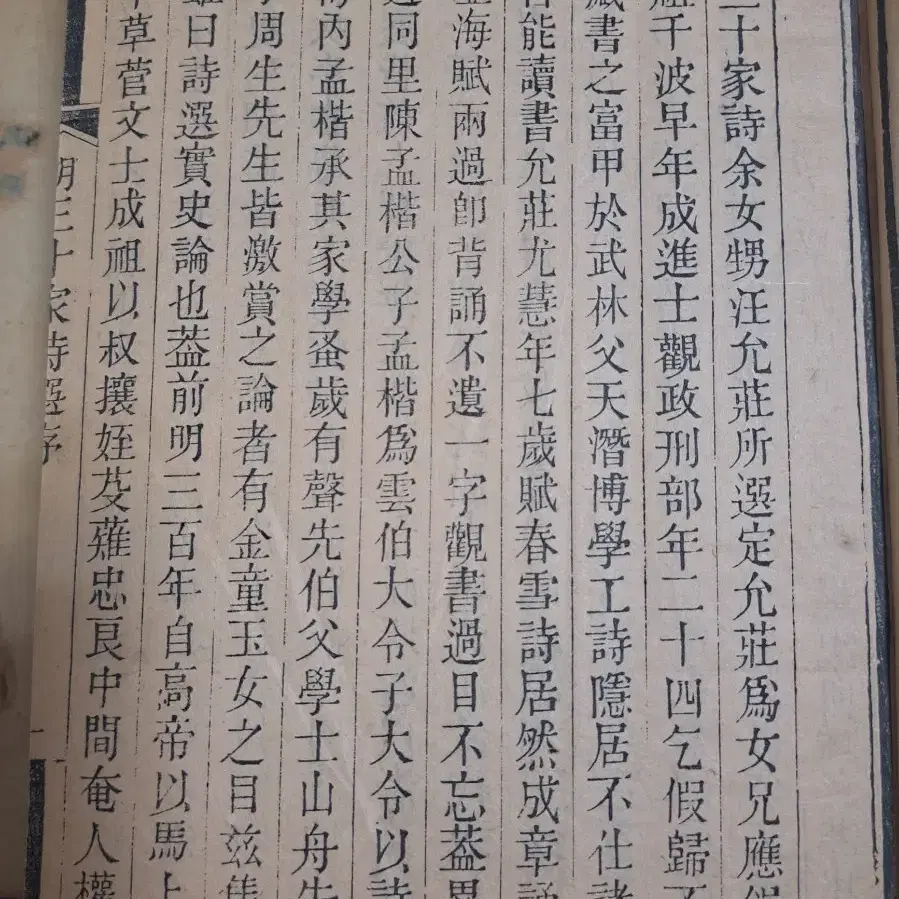 十家詩余女甥汪允莊所選定允莊爲女兄應
千波早年成進士觀政刑部年二十四乞假歸不
藏書之富甲於武林父天潛博學工詩隱居不仕諸
能讀書允莊尤慧年七歲賦春雪詩居然成章誦
海賦兩過卽背誦不遺一字觀書過目不忘葢
同里陳孟楷公子孟楷爲雲伯大令子大令以詩
內孟楷承其家學蚤歲有聲先伯父學士山舟先
周生先生皆激賞之論者有金童玉女之目茲集
雖曰詩選實史論也葢前明三百年自高帝以馬上
草菅文士成祖以叔攘姪芟薙忠良中間奄人權
明三十家詩選序